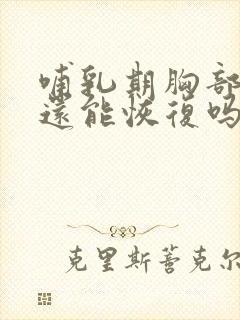 哺乳期胸部
還能恢復吗
克里斯蒼克尔